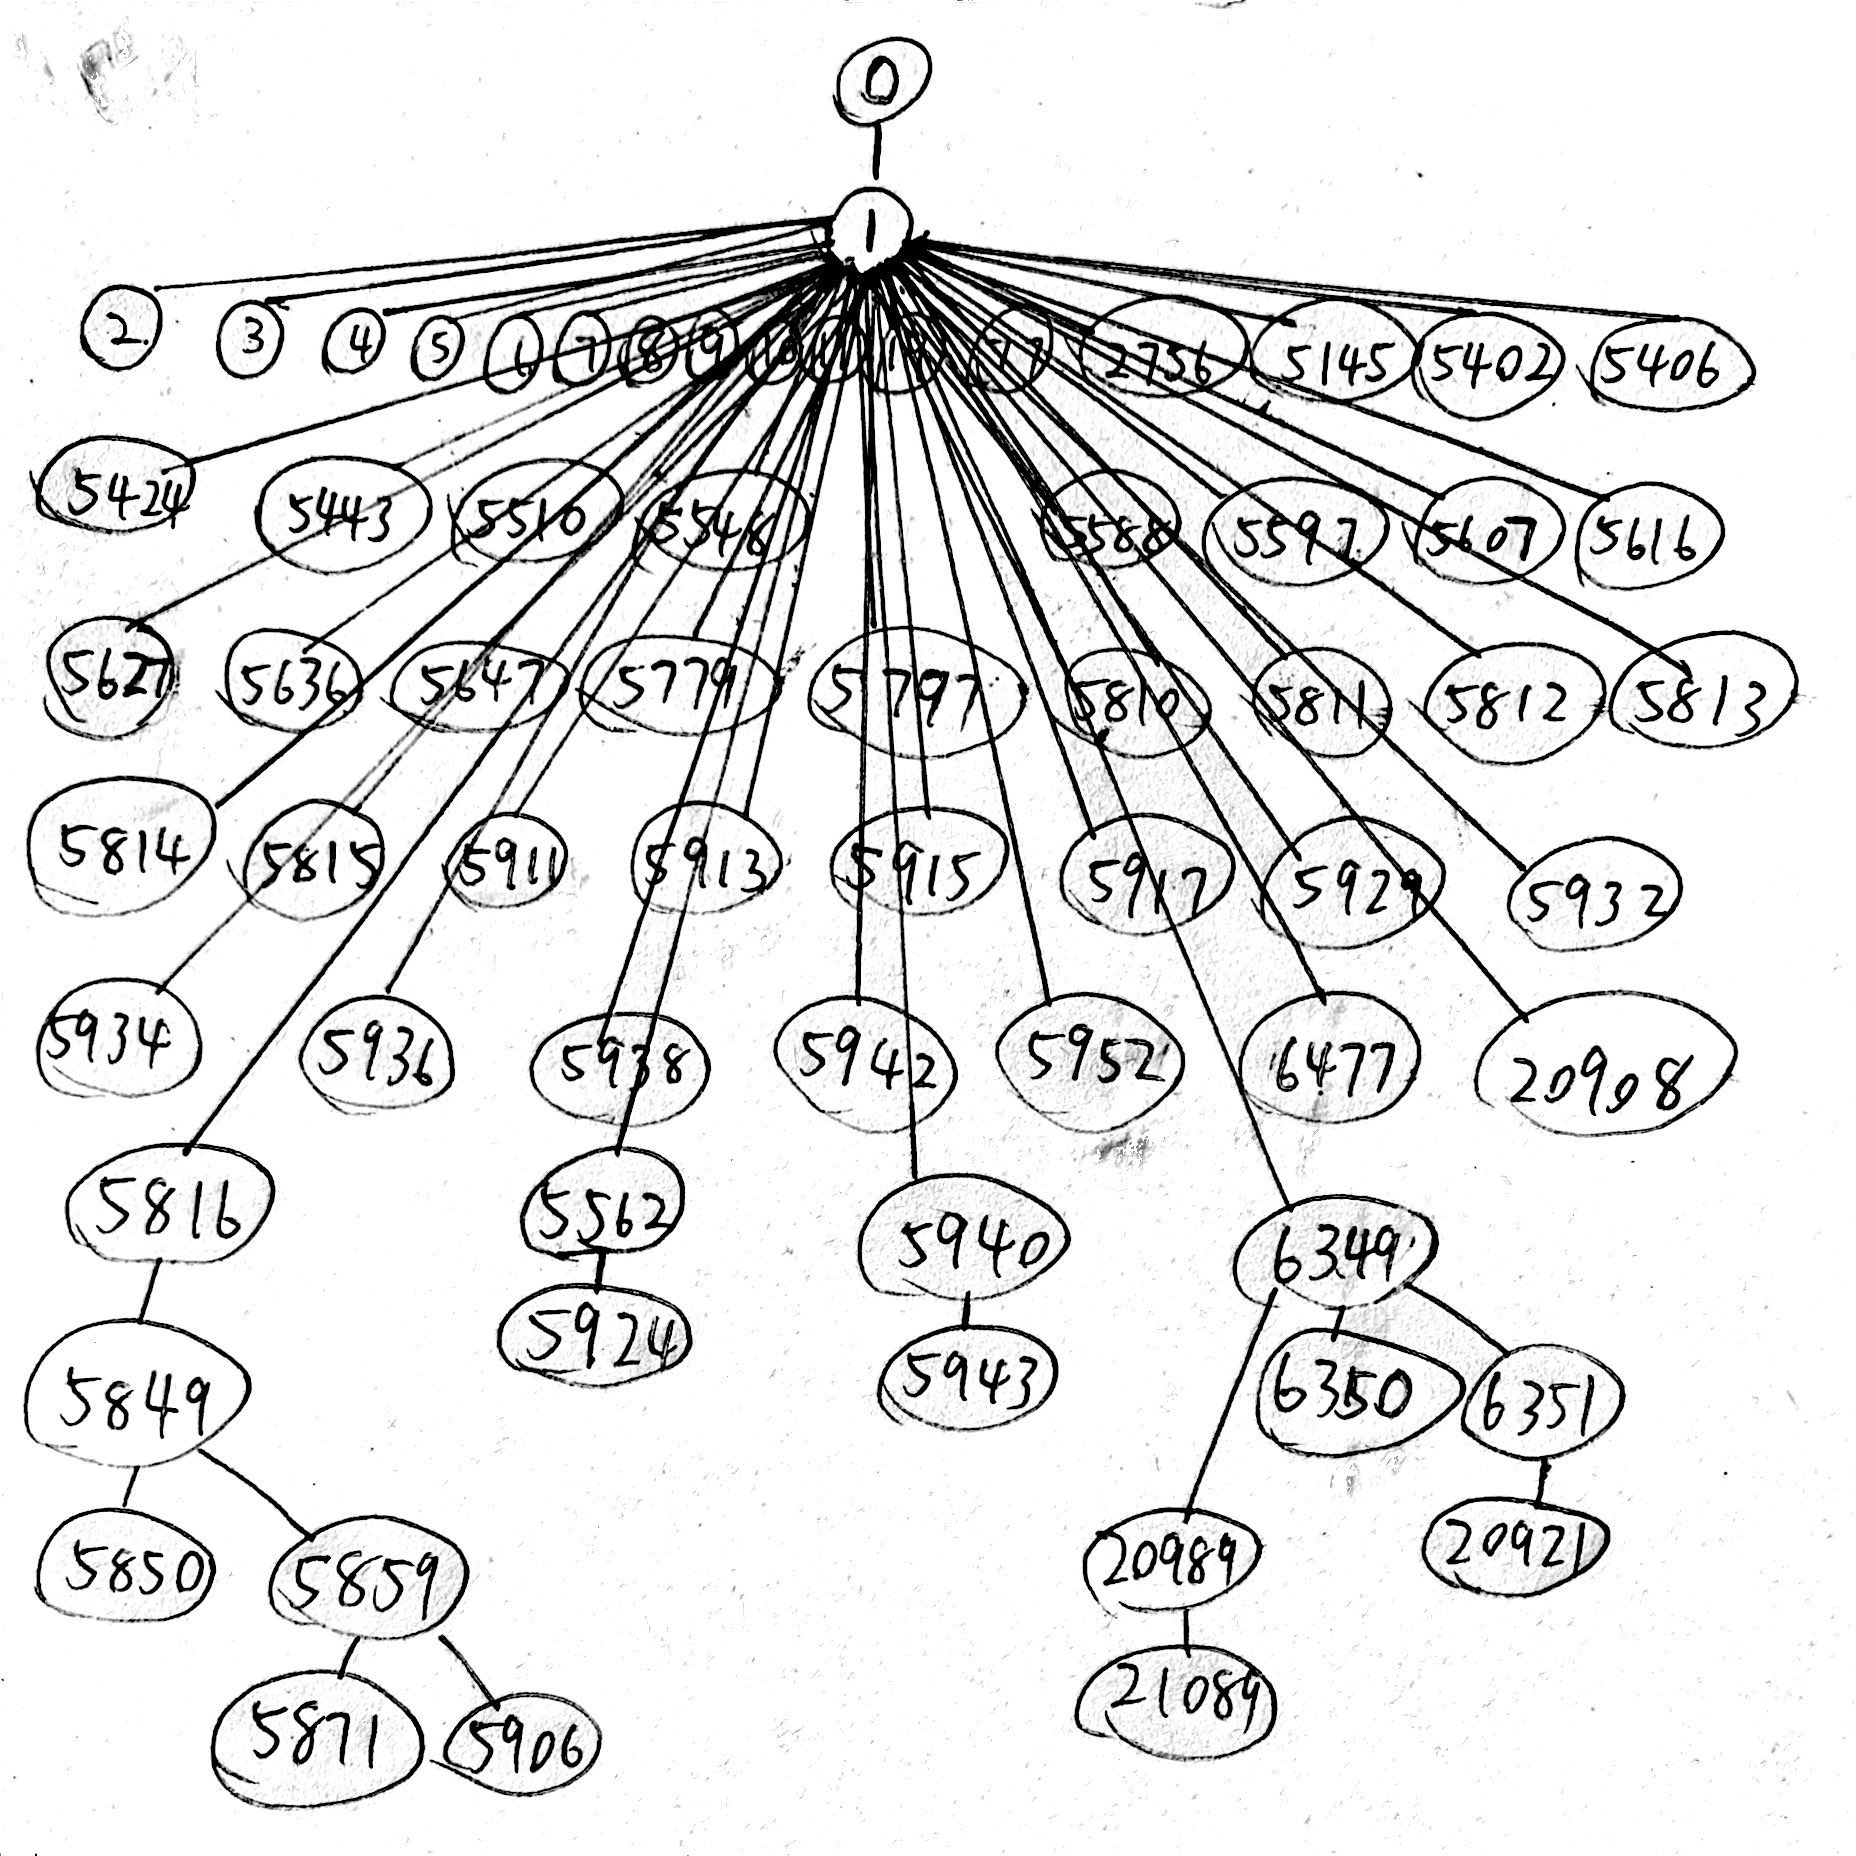 0
1
2 3 4 5 6 7 8 9 10 2756 5145 5402 5406
5424 5443 5510 5548 5588 5597 5607 5616
5627 5636 5647 5779 5797 5810 5811 5812 5813
5814 5815 5911 5913 5915 5917 5929 5932
5934 5936 5938 5942 5952 6477 20908
5816 5562 5940 6349
5849 5924 5943 6350 6351
5850 5859 20989 20921
5871 5906 21089